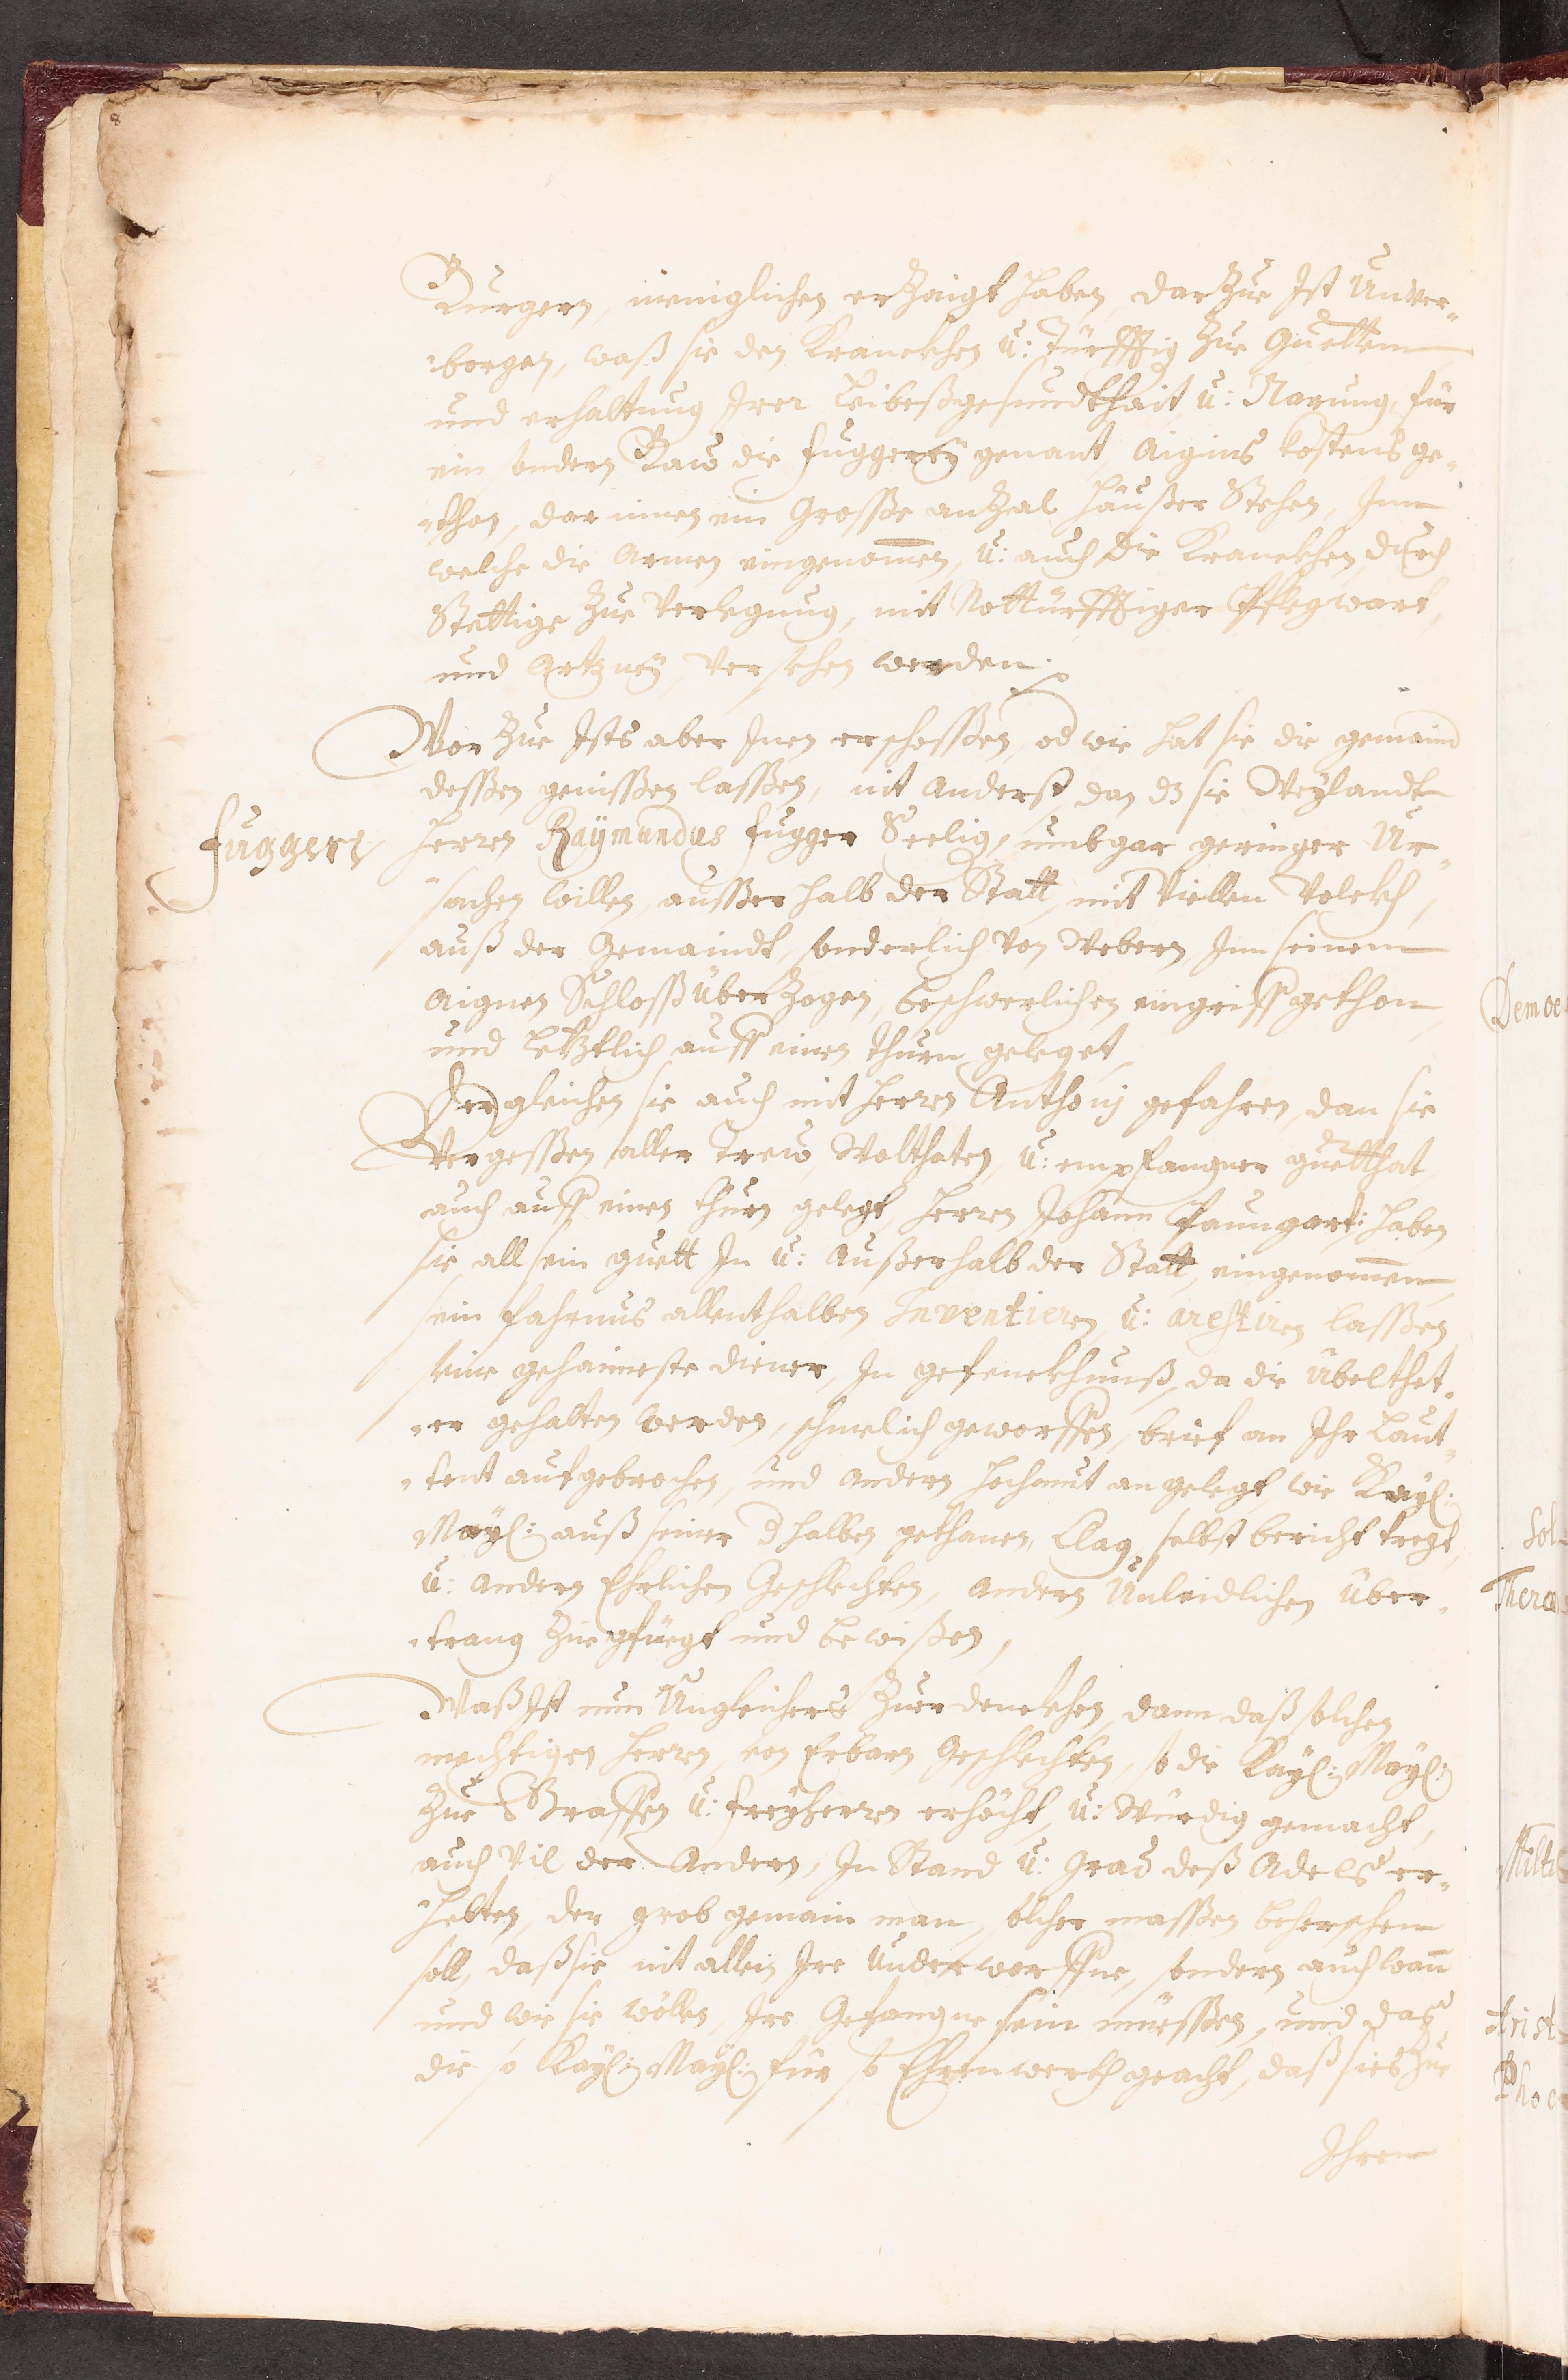 Burgern, meniglichen erzaigt haben, darzue Ist Unver-
borgen, waß sie den Kranckhen u: Dürfftig zue Guettem
und erhaltung Irer Leibeßgesundthait u: Narung, für
ein sondern Baw die Fuggerey genant, Aigins kostens ge-
thon, dar innen ein Grosse anzal Häußer Stehen, Inn
welche die Armen eingenomen, u: auch die Kranckhen, durch
Stettige zue Verlegnung, mit Notturfftiger Pflegwart,
und Artzney, versehen werden:
War zue Ists aber Inen erschossen, od wie hat sie die gemaind
dessen geniessen lassen, nit Anderst, dan dz sie Weylandt
Fuggers
Herren Raymundus Fugger Seelig, umb gar geringer Ur-
sachen willen, ausser halb der Statt, mit villen Volckh,
auß der Gemaindt, sonderlich von Webern, Inn seinem
Aignen Schloss überzogen, beschwerlichen eingriff gethon
und Letztlich auff einen Thurn geleget,
Der gleichen sie auch mit Herren Anthonj gefahren, dan sie
Vergessen aller Trew, Wolthaten, u: empfangner guetthat
auch auff einen thurn gelegt, Herren Johann Paungart: haben
sie all sein guett In u: Außerhalb der Statt, eingenommen
sein fahrnus allenthalben Inventieren, u: arestiren lassen
seine gehaimeste diener, In gefenckhnuß, da die Übelthet-
er gehalten werden, schmelich geworffen, brief an Ihr Laut-
tent aufgebrochen, und Andern hochmut angelegt, wie Kayl:
Mayl: auß seiner dhalben gethanen, Clag, selbst bericht tregt,
u: Andern Ehrlichen Geschlechten, Andern Unleidlichen Über-
trang zuegfüegt und bewißen,
Waß Ist nun Ungleichers zuerdenckhen, dann daß solchen
mechtigen Herren, von Erbarn Geschlechten, so die Kayl: Mayl:
zue Graffen u: freyherren erhöcht, u: Würdig gemacht,
auch Vil der Andern, In Stand u: Grad deß Adels er-
hebten, der grob gemain man, solcher massen beherschen
soll, daß sie nit allein Ire Underworffne, sondern auch wann
und wie sie wöllen, Ire Gefangne sein müessen, und das
die so Kayl: Mayl: für so Ehrenwerth geacht, daß sies zue
Ihren
8
Demoe
Sol
Thera
Milti
Arist
Phoc